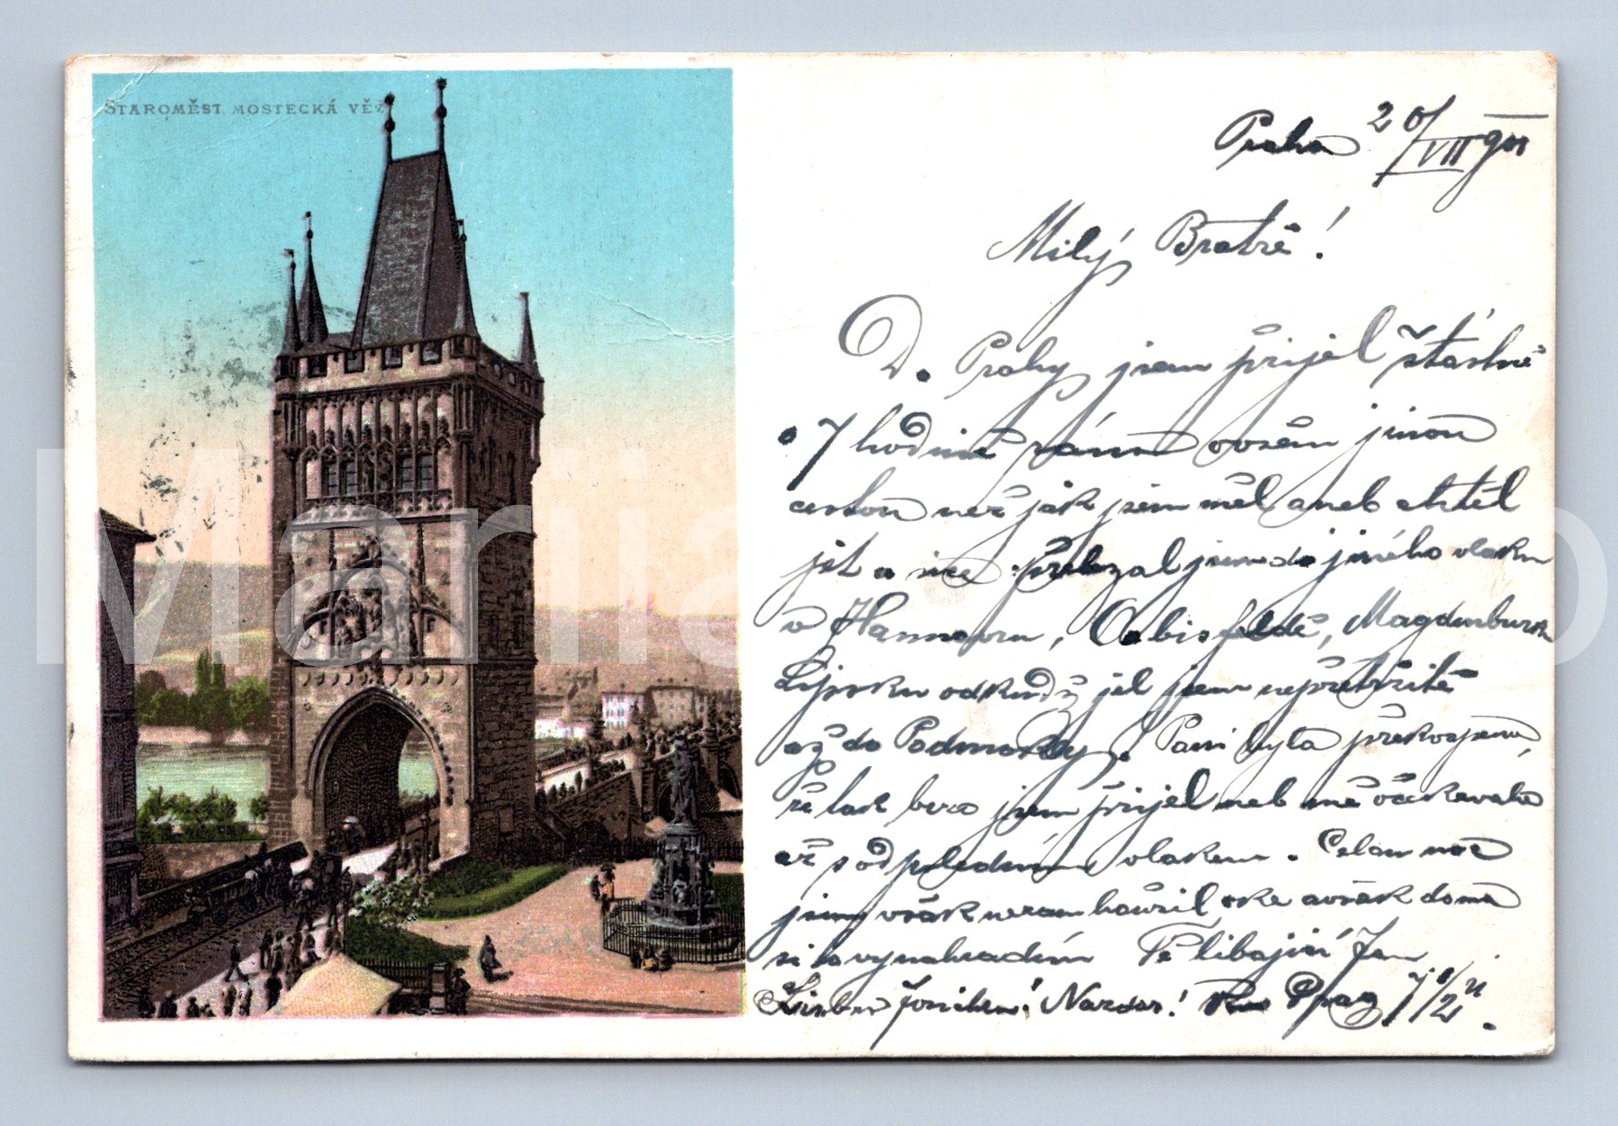 STAROMĚST. MOSTECKÁ VĚŽ
Praha 20/VII 901
Milý Bratře!
Do Prahy jsem přijel šťástně
o 7 hodině ráno ovšem jinou
cestou než jak jsem měl aneb chtěl
jet a sice přelezal jsem do jiného vlaku
v Hannovru, Oebisfeldě, Magdenburk
Lipsku odkudž jel jsem nepřetržitě
až do Podmokly. Paní byla překvapena,
že tak brzo jsem přijel neb mě očekávala
až s odpoledním vlakem. Celou noc
jsem však nezamhouřil oka avšak doma
si to vynahradím Tě líbající Jan
Nazdar! Prag 7 1/2 u.